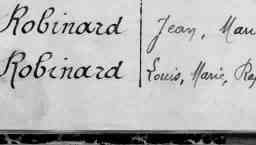 Robinard Jean, Mari
Robinard Louis, Marie,